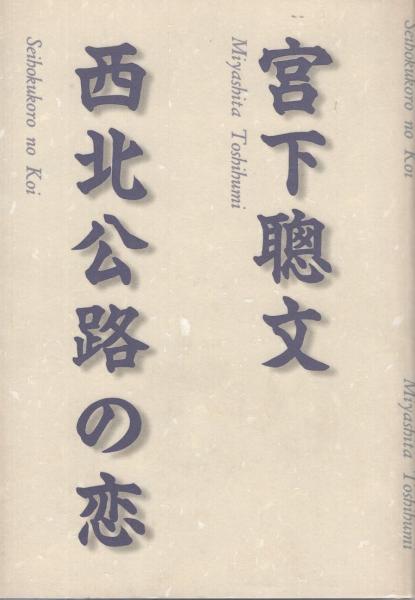 宮下聰文
Miyashita Toshihumi
西北公路の恋
Seihokukoro no Koi
Seihokukoro no Koi
Miyashita Toshihumi